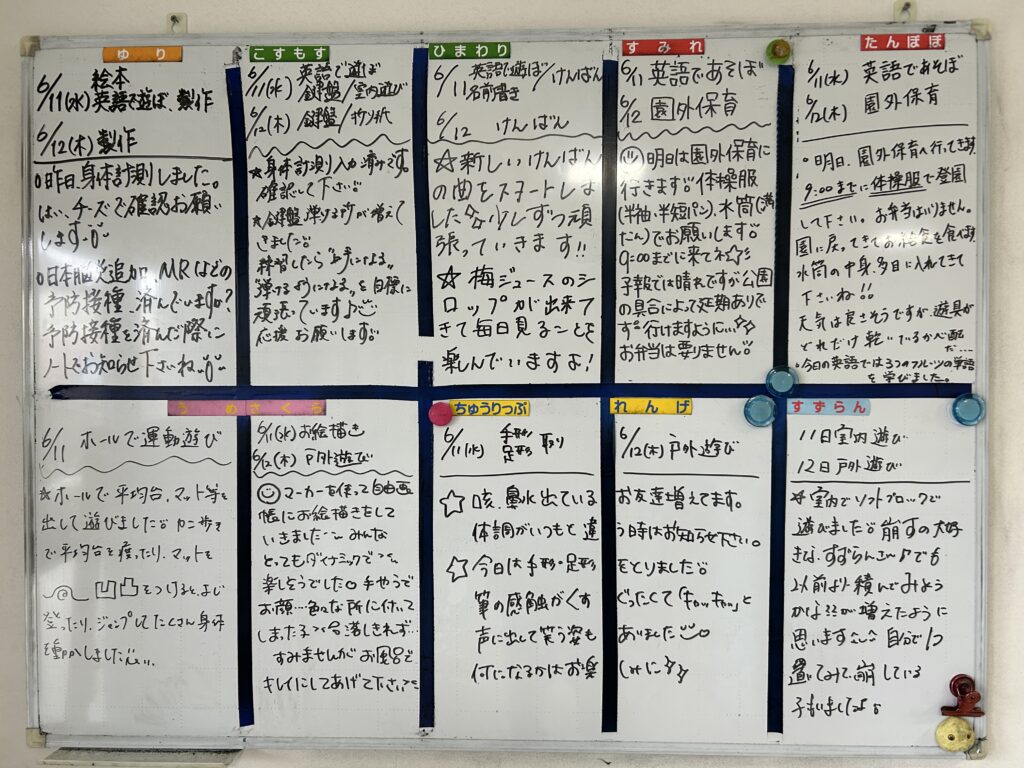 ゆり
6/11(水) 絵本
英語で遊ぼ、製作
6/12(木) 製作
○昨日、身体計測しました。
はい、チーズで確認お願い
します。
○日本脳炎追加、MRなどの
予防接種、済んでいますか?
予防接種を済んだ際に
ノートでお知らせ下さいね。
こすもす
6/11(水) 英語で遊ぼ
鍵盤/室内遊び
6/12(木)/鍵盤/
★身体計測入力済みです。
確認して下さい。
★鍵盤弾ける所が増えて
きました
練習したら"上手になる"
弾けるようになる"を目標に
頑張っています♪
応援お願いします。
ひまわり
6/11 英語で遊ぼ/けんばん
名前書き
6/12 けんばん
☆新しいけんばん
の曲をスタートしま
した 少しずつ頑
張っていきます!!
☆梅ジュースのシ
ロップが出来て
きて毎日見ることを
楽しんでいますよ!
すみれ
6/11 英語であそぼ
6/12 園外保育
明日は園外保育に
行きます。体操服
(半袖・半短パン)、水筒(満
たん)でお願いします。
9:00までに来てね☆
予報では晴れですが公園
の具合によって延期ありで
す。行けますように...☆
お弁当は要りません。
たんぽぽ
6/11(水) 英語であそぼ
6/12(木) 園外保育
○明日、園外保育へ行ってきます
9:00までに体操服で登園
して下さい。お弁当はいりません。
園に戻ってきてお給食を食べます
水筒の中身、多目に入れてきて
下さいね!!
天気は良さそうですが、遊具が
どれだけ乾いてるか心配
だ...
・今日の英語では3つのフルーツの単語
を学びました。
うめ さくら
6/11 ホールで運動遊び
☆ホールで平均台、マット等を
出して遊びました カニ歩き
で平均台を渡ったり、マットを
凹凸をつけると、よじ
登ったり、ジャンプしてたくさん身体
を動かしました
6/11(水) お絵描き
6/12(木) 戸外遊び
マーカーを使って自由画
帳にお絵描きをして
いきました〜 みんな
とってもダイナミックで〜
楽しそうでした。手やうで
お顔...色んな所に付いて
しまった子も 落しきれず...
すみませんがお風呂で
キレイにしてあげて下さい
ちゅうりっぷ
6/11(水) 手形・足形 取り
☆咳、鼻水出ている
体調がいつもと違
☆今日は手形・足形
筆の感触がくす
声に出して笑う姿も
何になるかはお楽
れんげ
6/12(木) 戸外遊び
お友達増えてます。
う時はお知らせ下さい。
をとりました
ぐったくて「キャッキャッ」と
ありました
しみに☆
すずらん
11日 室内遊び
12日 戸外遊び
☆室内でソフトブロックで
遊びました 崩すの大好
きな、すずらんさん♪でも
以前より積んでみよう
かな が増えたように
思います 自分で1コ
置いてみて、崩している
子もいましたよ